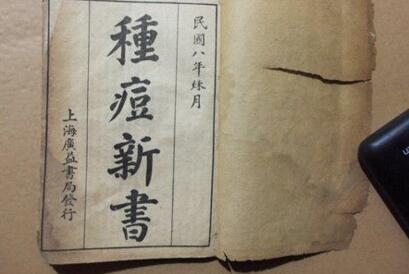 民國八年烌月
種痘新書
上海廣益書局發行